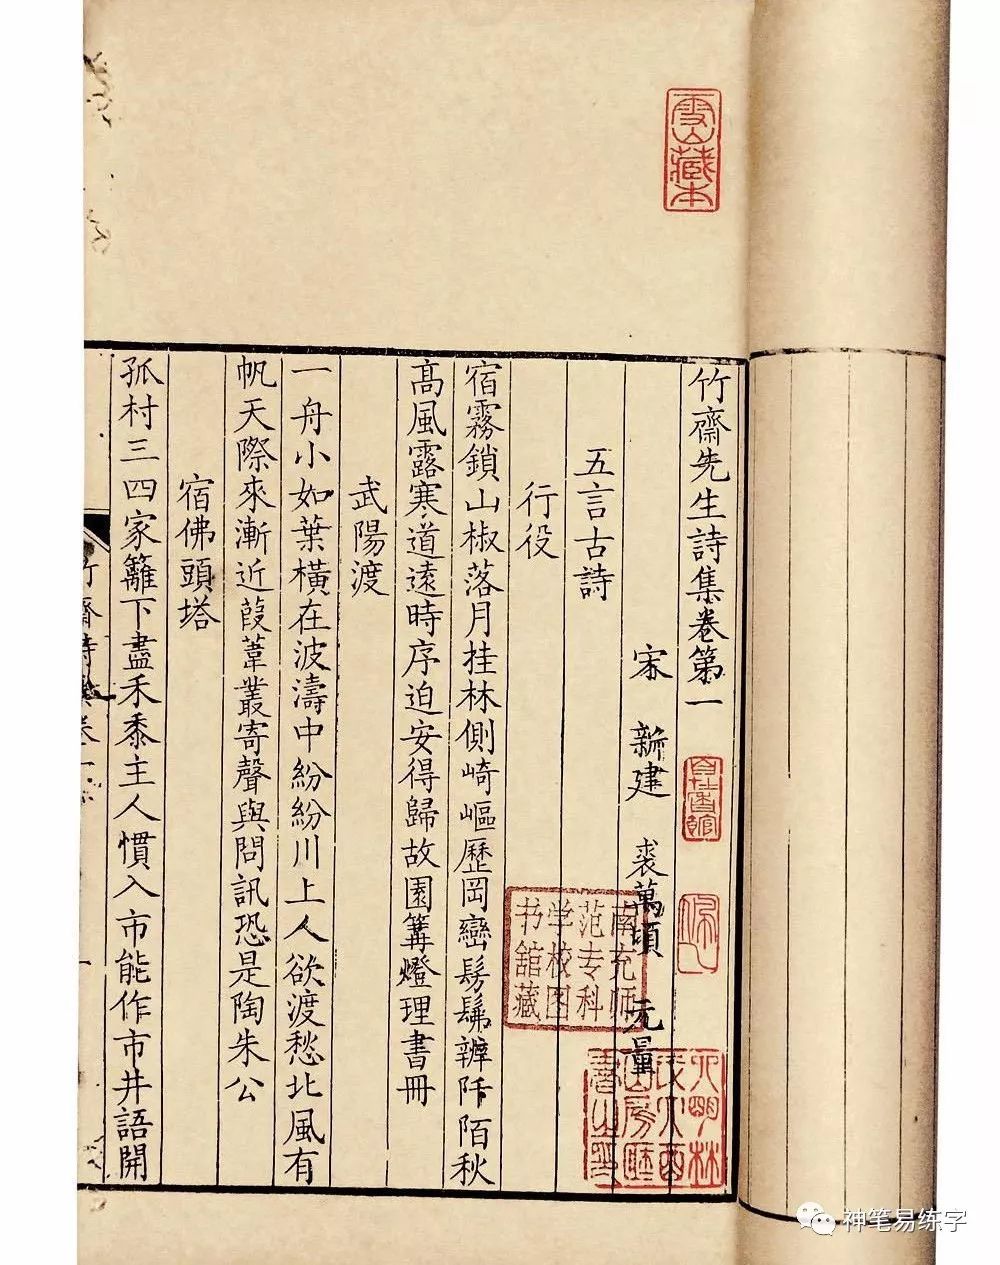 雪山藏本
竹齋先生詩集卷第一
宋 新建 裘萬頃 元量
五言古詩
行役
宿霧鎖山椒落月挂林側崎嶇歷岡巒髣髴辨阡陌秋
高風露寒道遠時序迫安得歸故園篝燈理書冊
武陽渡
一舟小如葉橫在波濤中紛紛川上人欲渡愁北風有
帆天際來漸近葭葦叢寄聲與問訊恐是陶朱公
宿佛頭塔
孤村三四家籬下盡禾黍主人慣入市能作市井語開
竹齋詩集卷一
南充师
范专科
学校图
书舘藏
神笔易练字